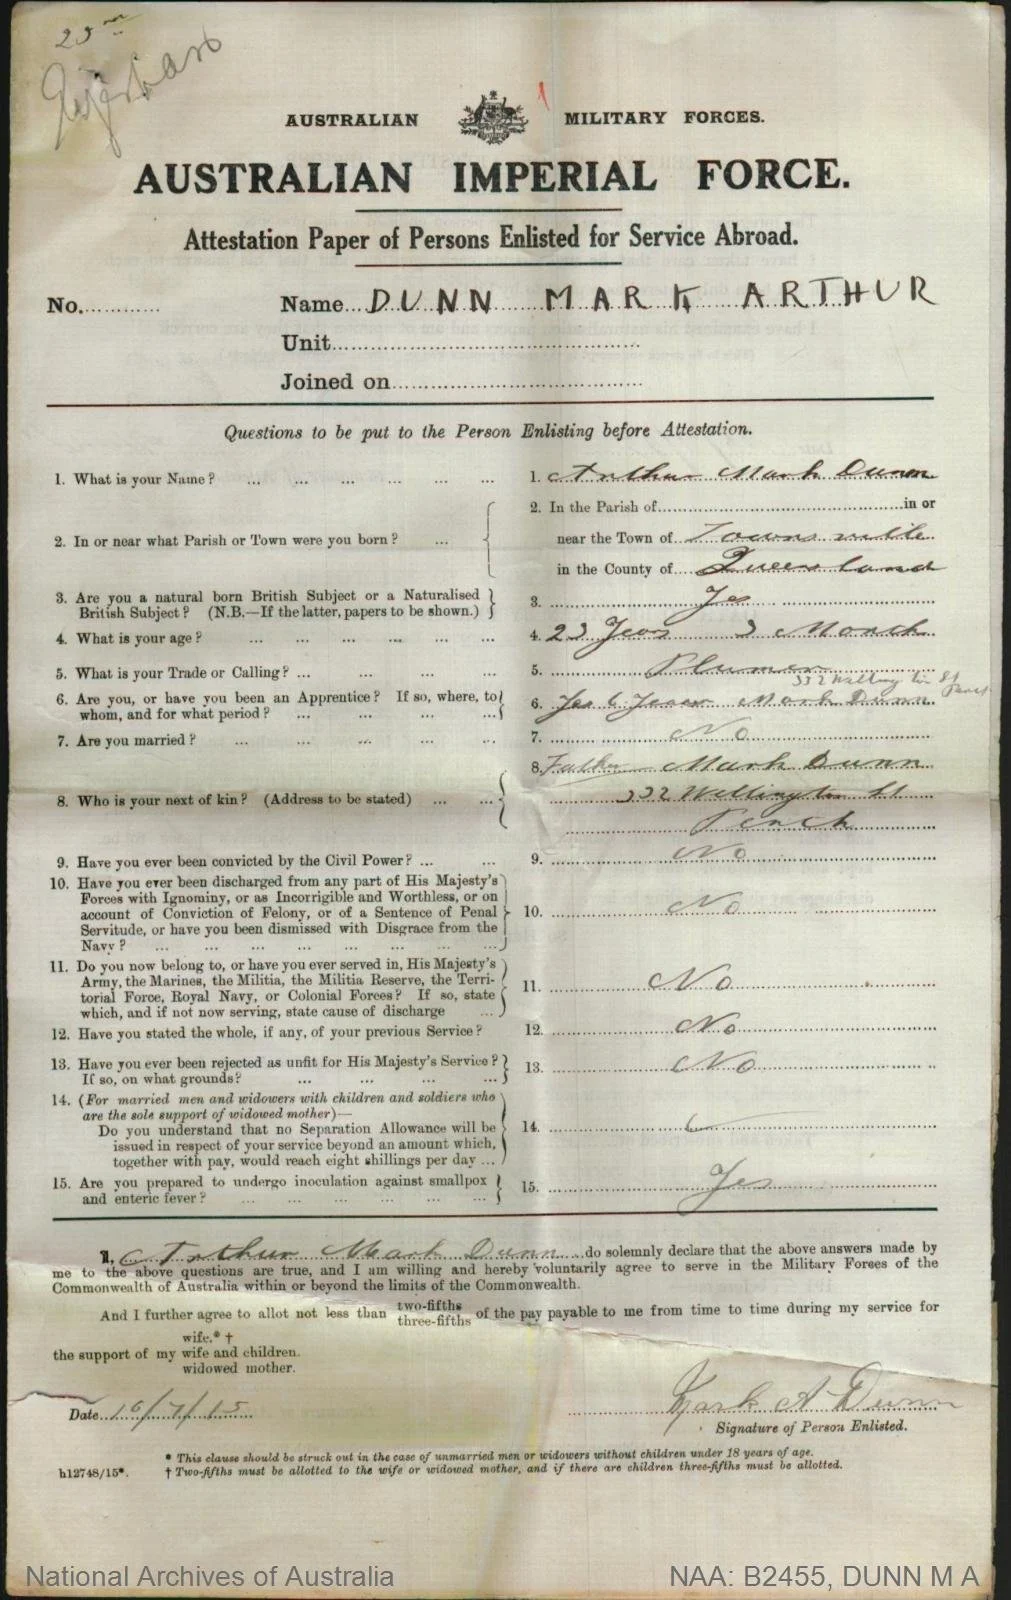 23rd
AUSTRALIAN MILITARY FORCES.
AUSTRALIAN IMPERIAL FORCE.
Attestation Paper of Persons Enlisted for Service Abroad.
No............ Name...DUNN MARK ARTHUR
Unit................
Joined on................
Questions to be put to the Person Enlisting before Attestation.
1. What is your Name? ... ... ... ... ... 1. Arthur Mark Dunn
2. In the Parish of................in or
2. In or near what Parish or Town were you born? ... near the Town of Townsville
in the County of Queensland
3. Are you a natural born British Subject or a Naturalised
British Subject? (N.B.—If the latter, papers to be shown.) 3. Yes
4. What is your age? ... ... ... ... ... 4. 23 Years 3 Month
5. What is your Trade or Calling? ... ... ... ... 5. Plumer
332 Wellington St
Perth
6. Are you, or have you been an Apprentice? If so, where, to
whom, and for what period? ... ... ... ... 6. Yes 6 Years Mark Dunn
7. Are you married? ... ... ... ... ... 7. No
8. Father Mark Dunn
8. Who is your next of kin? (Address to be stated) ... ... 332 Wellington St
Perth
9. Have you ever been convicted by the Civil Power? ... ... 9. No
10. Have you ever been discharged from any part of His Majesty's
Forces with Ignominy, or as Incorrigible and Worthless, or on
account of Conviction of Felony, or of a Sentence of Penal 10. No
Servitude, or have you been dismissed with Disgrace from the
Navy? ... ... ... ... ... ... ... ...
11. Do you now belong to, or have you ever served in, His Majesty's
Army, the Marines, the Militia, the Militia Reserve, the Terri-
torial Force, Royal Navy, or Colonial Forces? If so, state 11. No
which, and if not now serving, state cause of discharge ...
12. Have you stated the whole, if any, of your previous Service? 12. No
13. Have you ever been rejected as unfit for His Majesty's Service?
If so, on what grounds? ... ... ... ... 13. No
14. (For married men and widowers with children and soldiers who
are the sole support of widowed mother)—
Do you understand that no Separation Allowance will be 14.
issued in respect of your service beyond an amount which,
together with pay, would reach eight shillings per day ...
15. Are you prepared to undergo inoculation against smallpox
and enteric fever? ... ... ... ... ... ... 15. Yes
I, Arthur Mark Dunn do solemnly declare that the above answers made by
me to the above questions are true, and I am willing and hereby voluntarily agree to serve in the Military Forces of the
Commonwealth of Australia within or beyond the limits of the Commonwealth.
And I further agree to allot not less than two-fifths
three-fifths of the pay payable to me from time to time during my service for
wife.* †
the support of my wife and children.
widowed mother.
Date 16/7/15 Mark A Dunn
Signature of Person Enlisted.
* This clause should be struck out in the case of unmarried men or widowers without children under 18 years of age.
h12748/15*. † Two-fifths must be allotted to the wife or widowed mother, and if there are children three-fifths must be allotted.
National Archives of Australia NAA: B2455, DUNN M A